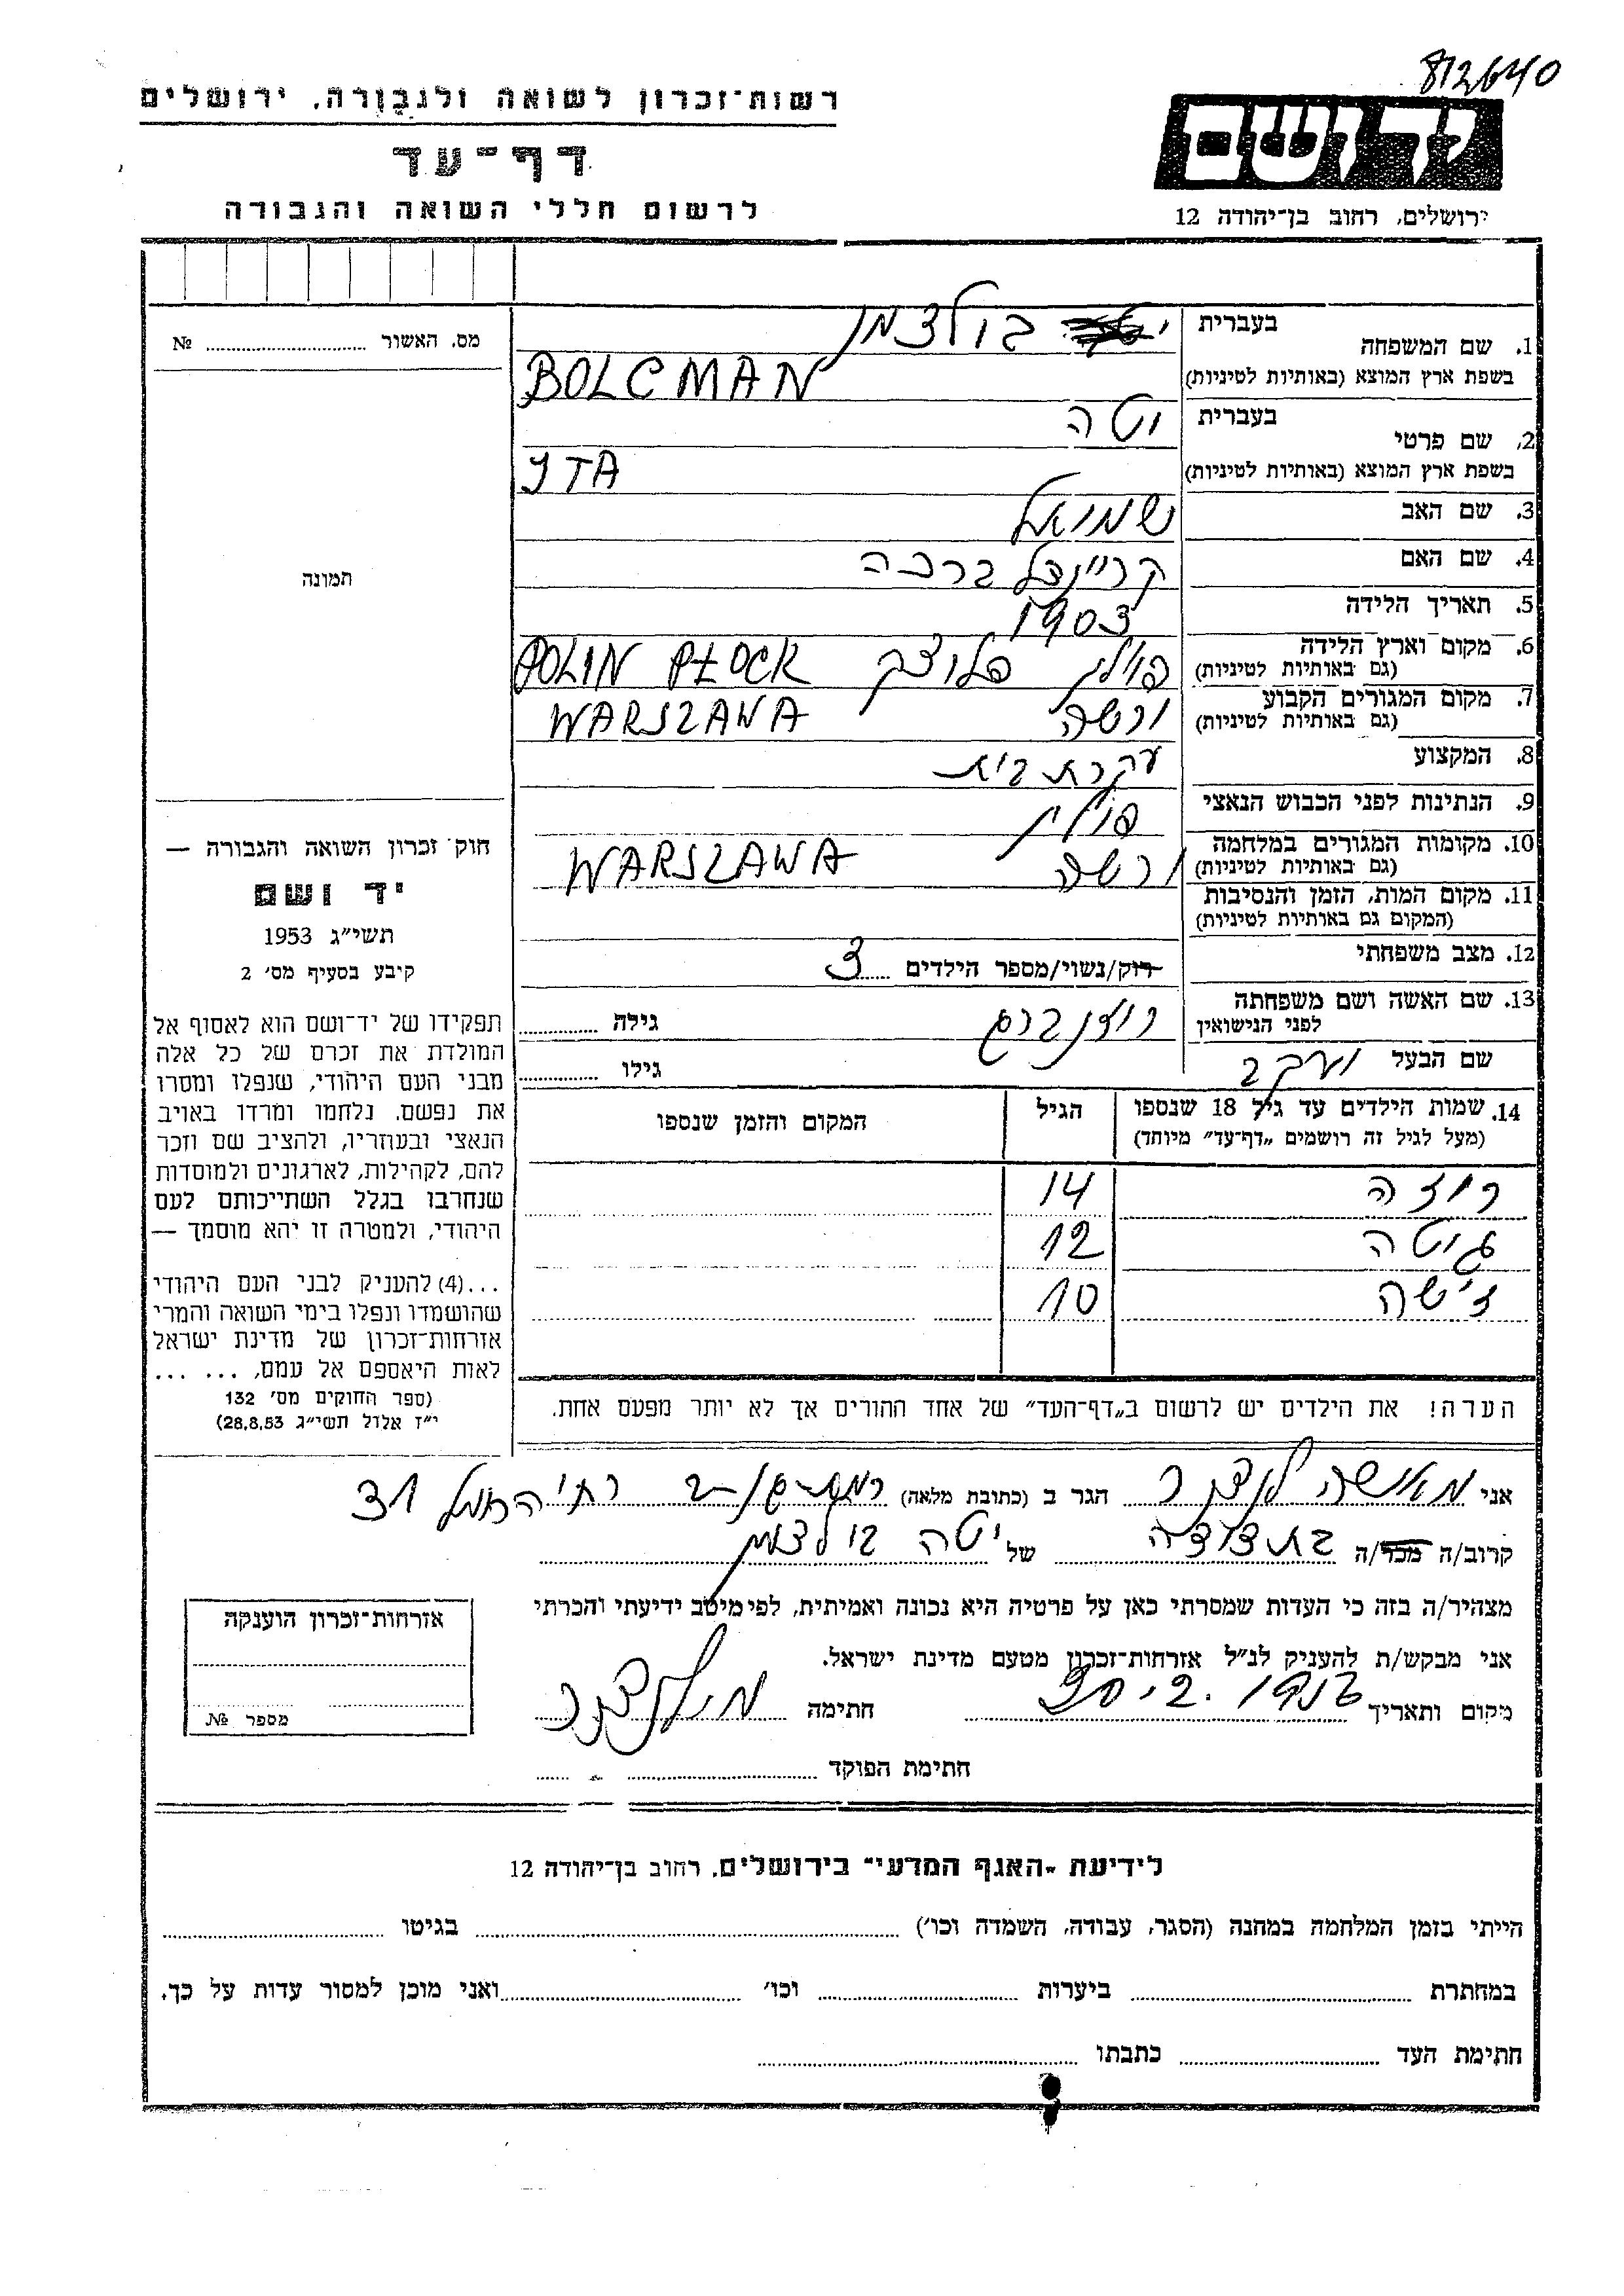 812640
רשות־זכרון לשואה ולגבורה, ירושלים
דף־עד
לרשום חללי השואה והגבורה
יד ושם
ירושלים, רחוב בן־יהודה 12
1. שם המשפחה בעברית בולצמן
בשפת ארץ המוצא (באותיות לטיניות) BOLCMAN
2. שם פרטי בעברית יטה
בשפת ארץ המוצא (באותיות לטיניות) YTA
3. שם האב שמואל
4. שם האם קריינדל ברכה
5. תאריך הלידה 1903
6. מקום וארץ הלידה פולין פלוצק POLIN PŁOCK
(גם באותיות לטיניות)
7. מקום המגורים הקבוע ורשה WARSZAWA
(גם באותיות לטיניות)
8. המקצוע עקרת בית
9. הנתינות לפני הכבוש הנאצי פולין
10. מקומות המגורים במלחמה ורשה WARSZAWA
(גם באותיות לטיניות)
11. מקום המות, הזמן והנסיבות
(המקום גם באותיות לטיניות)
12. מצב משפחתי רוק/נשוי/מספר הילדים 3
13. שם האשה ושם משפחתה רוזנברג גילה
לפני הנישואין
שם הבעל יעקב גילו
14. שמות הילדים עד גיל 18 שנספו הגיל המקום והזמן שנספו
(מעל לגיל זה רושמים „דף־עד” מיוחד)
רוזה 14
גיטה 12
זישה 10
הערה! את הילדים יש לרשום ב„דף־העד” של אחד ההורים אך לא יותר מפעם אחת.
מס. האשור №
תמונה
חוק זכרון השואה והגבורה —
יד ושם
תשי״ג 1953
קיבע בסעיף מס׳ 2
תפקידו של יד־ושם הוא לאסוף אל
המולדת את זכרם של כל אלה
מבני העם היהודי, שנפלו ומסרו
את נפשם, נלחמו ומרדו באויב
הנאצי ובעוזריו, ולהציב שם וזכר
להם, לקהילות, לארגונים ולמוסדות
שנחרבו בגלל השתייכותם לעם
היהודי, ולמטרה זו יהא מוסמך —
...(4) להעניק לבני העם היהודי
שהושמדו ונפלו בימי השואה והמרי
אזרחות־זכרון של מדינת ישראל
לאות היאספם אל עמם, ... ...
(ספר החוקים מס׳ 132
י״ז אלול תשי״ג 28.8.53)
אני הגר ב (כתובת מלאה) רמת-גן 31
קרוב/ה מכר/ה בת דודה של יטה בולצמן
מצהיר/ה בזה כי העדות שמסרתי כאן על פרטיה היא נכונה ואמיתית, לפי מיטב ידיעתי והכרתי
אני מבקש/ת להעניק לנ״ל אזרחות־זכרון מטעם מדינת ישראל.
מקום ותאריך חתימה
חתימת הפוקד
אזרחות־זכרון הוענקה
מספר №
לידיעת „האגף המדעי” בירושלים, רחוב בן־יהודה 12
הייתי בזמן המלחמה במחנה (הסגר, עבודה, השמדה וכו׳) בגיטו
במחתרת ביערות וכו׳ ואני מוכן למסור עדות על כך.
חתימת העד כתבתו